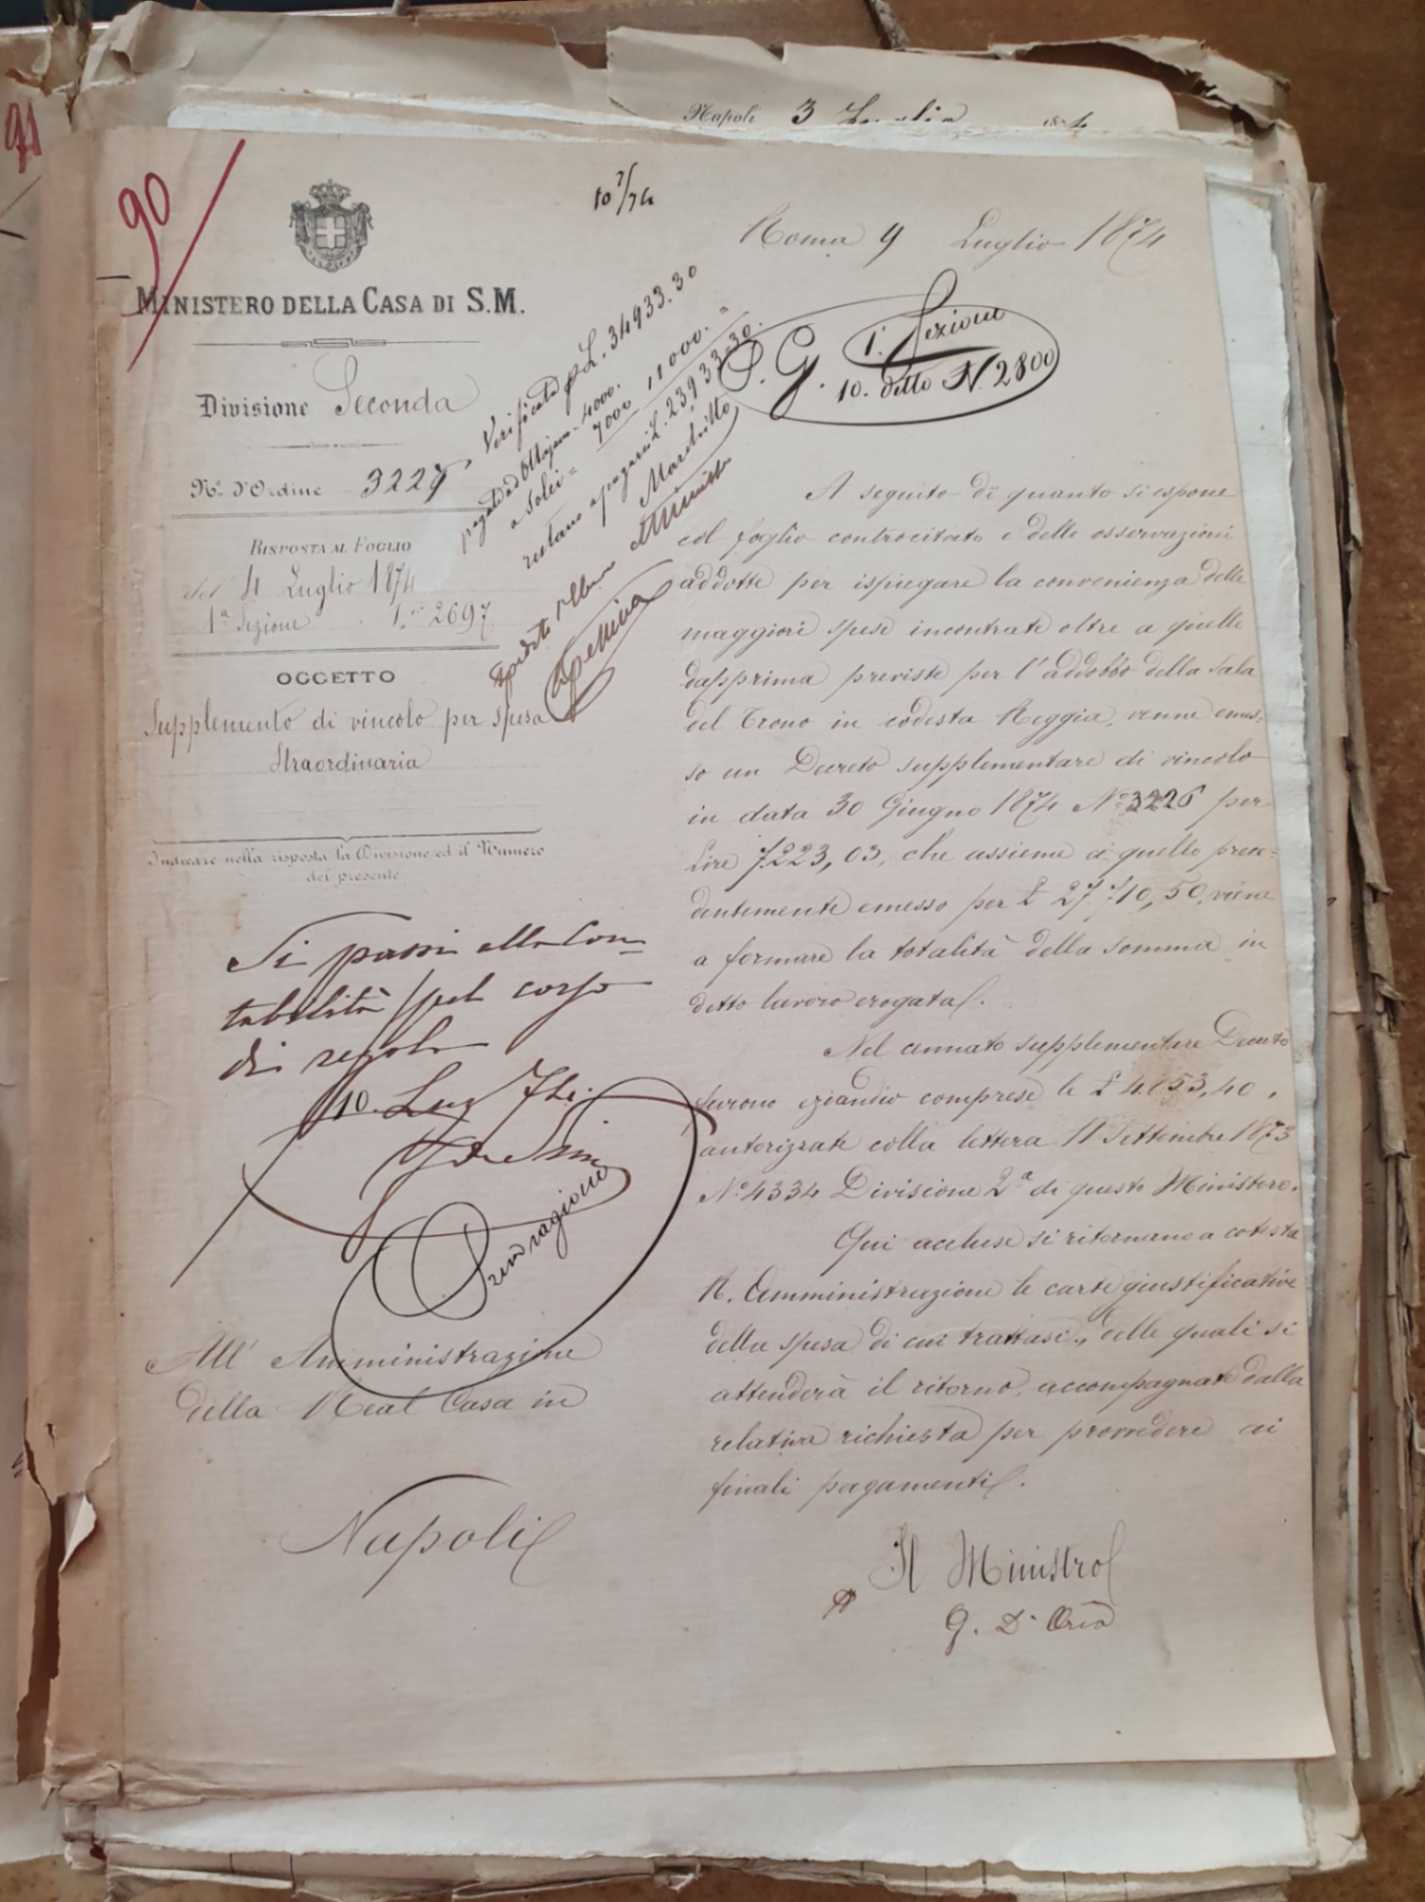 91
Napoli 3 Luglio 1874
90
10 7/74
Roma 9 Luglio 1874
MINISTERO DELLA CASA DI S.M.
Divisione Seconda
N.º d'Ordine 3229
RISPOSTA AL FOGLIO
del 4 Luglio 1874
1ª Sezione N.º 2697
OGGETTO
Supplemento di vincolo per spesa
straordinaria
Indicare nella risposta la Divisione ed il Numero
del presente
Verificato p L. 34933.30
pagato ad Ottajano 4000.
a Solei = 7000 11000. "
restano a pagarsi L. 23933.30.
P. G. 1ª Sezione
10. detto N. 2800
A seguito di quanto si espone
col foglio controcitato e delle osservazioni
addotte per ispiegare la convenienza delle
maggiori spese incontrate oltre a quelle
dapprima previste per l'addobbo della Sala
del Trono in codesta Reggia, venne emes-
so un Decreto supplementare di vincolo
in data 30 Giugno 1874 Nº 3226 per
Lire 7223,03, che assieme a quello prece-
dentemente emesso per £ 27710,50, viene
a formare la totalità della somma in
detto lavoro erogata.
Nel cennato supplementare Decreto
furono eziandio comprese le £ 4653,40,
autorizzate colla lettera 11 Settembre 1873
Nº 4334 Divisione 2ª di questo Ministero.
Qui accluse si ritornano a cotesta
R. Amministrazione le carte giustificative
della spesa di cui trattasi, delle quali si
attenderà il ritorno, accompagnate dalla
relativa richiesta per provvedere ai
finali pagamenti.
Il Ministro
Si passi alla Con-
tabilità pel corso
di regola
10 Lug 74
All' Amministrazione
della Real Casa in
Napoli